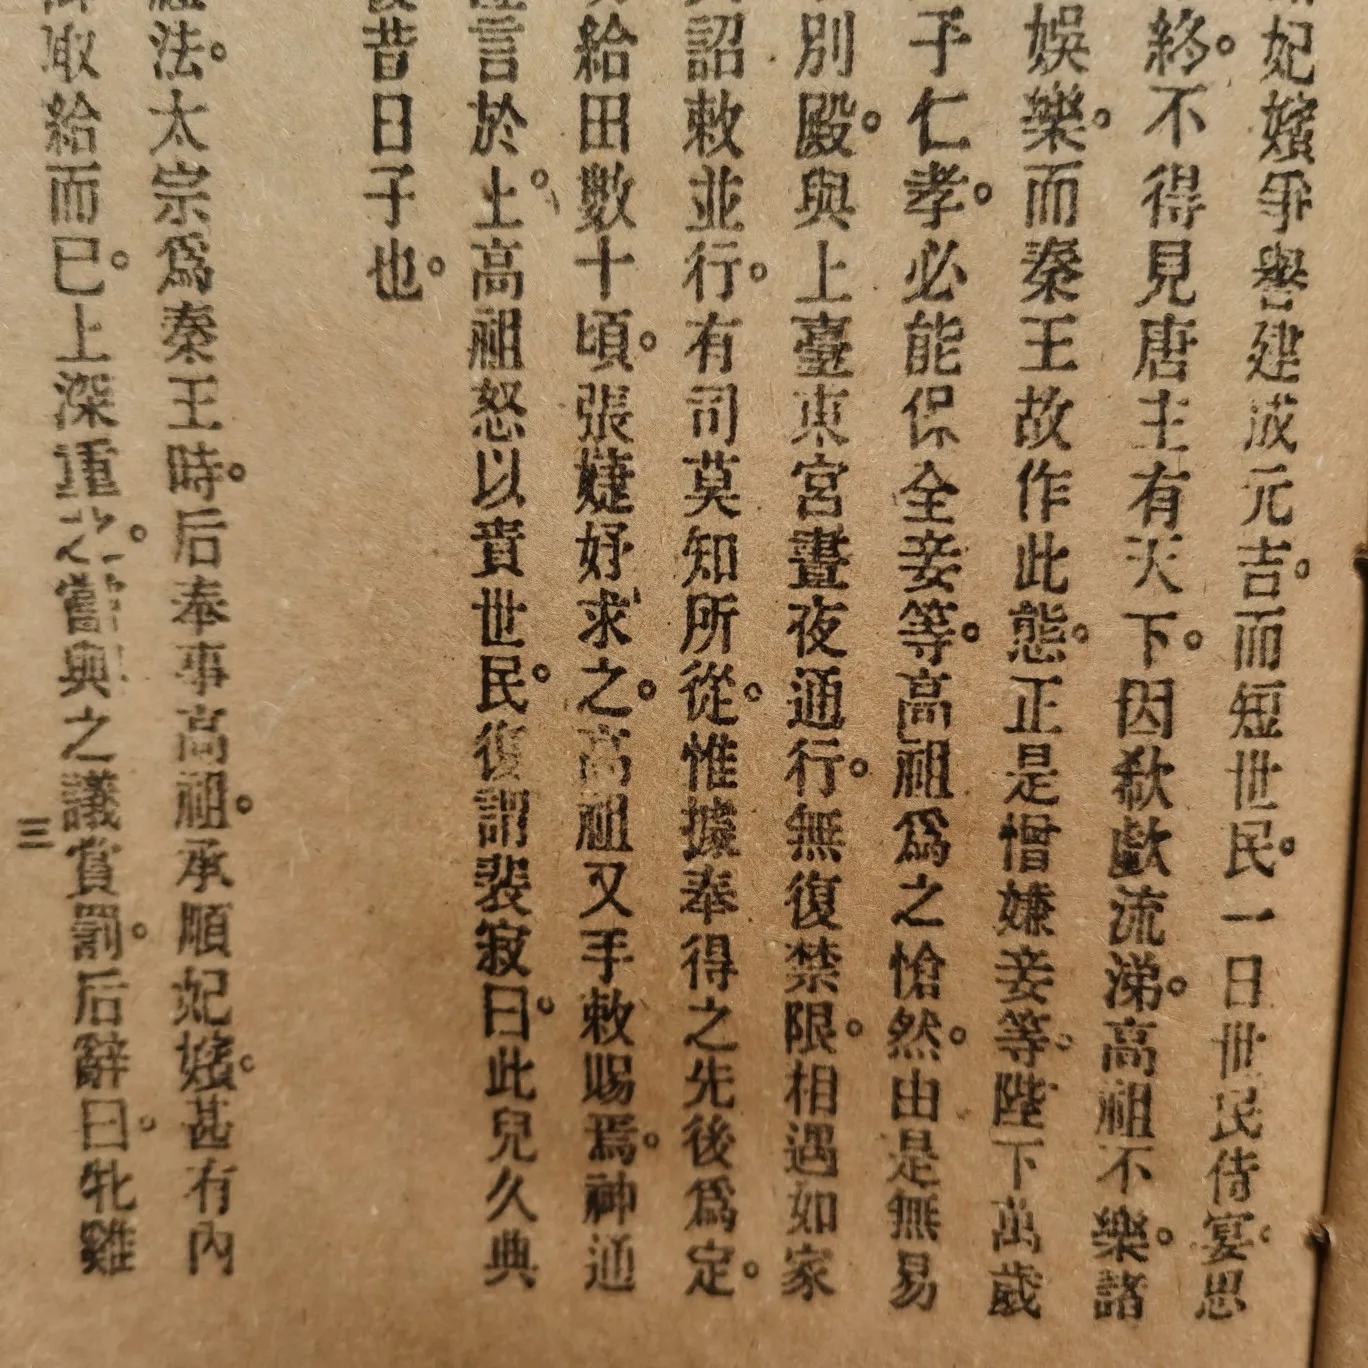 妃嬪爭譽建成元吉。而短世民。一日世民侍宴。思
終。不得見唐主有天下。因欷歔流涕。高祖不樂。諸
娛樂。而秦王故作此態。正是憎嫌妾等。陛下萬歲
子仁孝。必能保全妾等。高祖爲之愴然。由是無易
別殿。與上臺東宮晝夜通行。無復禁限。相遇如家
詔敕並行。有司莫知所從。惟據奉得之先後爲定。
給田數十頃。張婕妤求之。高祖又手敕賜焉。神通
言於上。高祖怒以責世民。復謂裴寂曰。此兒久典
昔日子也。
法。太宗爲秦王時。后奉事高祖。承順妃嬪。甚有內
取給而已。上深重之。嘗與之議賞罰。后辭曰。牝雞
三